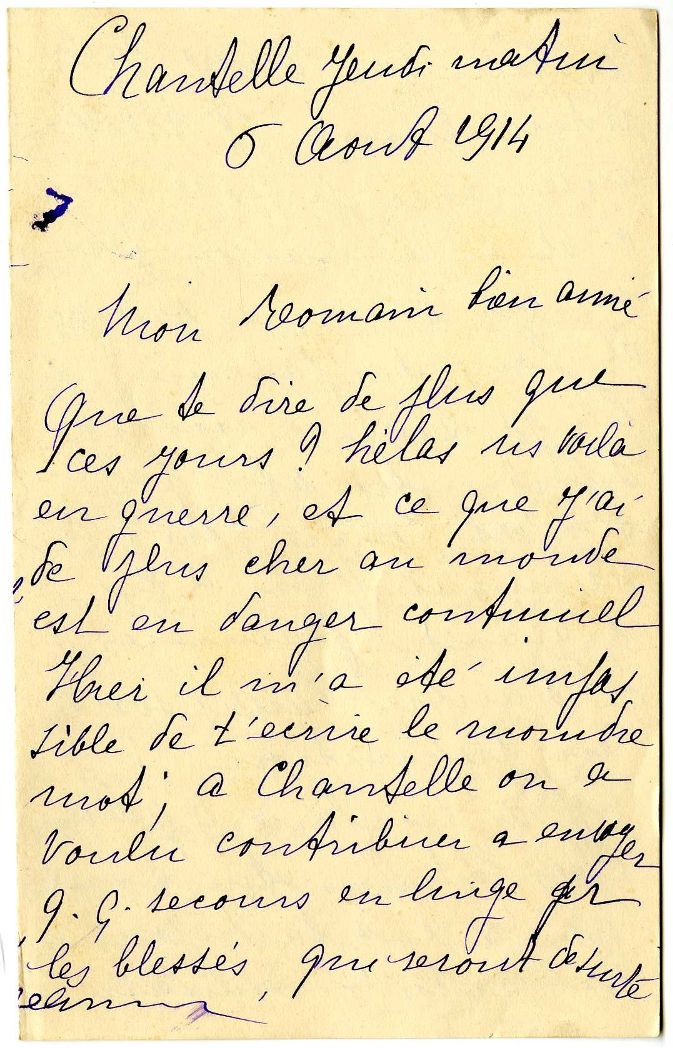 Chantelle Jeudi matin
6 Aout 1914
Mon Romain bien aimé
Que te dire de plus que
ces jours ? hélas ns voilà
en guerre, et ce que j'ai
de plus cher au monde
est en danger continuel
Hier il m'a été impos
sible de t'ecrire le moindre
mot ; a Chantelle on a
voulu contribuer a envoyer
q. q. secours en linge pr
les blessés, qui seront de sureté